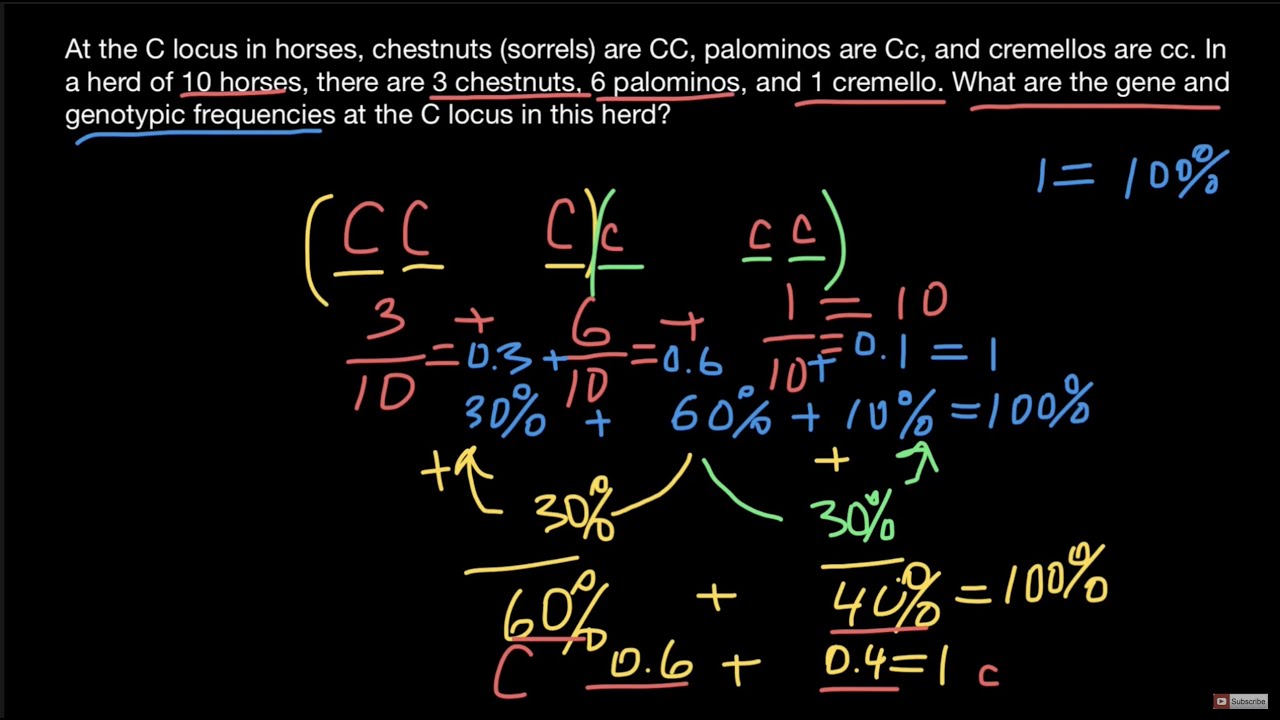 At the C locus in horses, chestnuts (sorrels) are CC, palominos are Cc, and cremellos are cc. In
a herd of 10 horses, there are 3 chestnuts, 6 palominos, and 1 cremello. What are the gene and
genotypic frequencies at the C locus in this herd?
1 = 100%
(CC C)(c cc)
3/10 = 0.3 + 6/10 = 0.6 + 1/10 = 0.1 = 1
+ + = 10
30% + 60% + 10% = 100%
+ +
30% 30%
60% + 40% = 100%
C 0.6 + 0.4 = 1 c
Subscribe